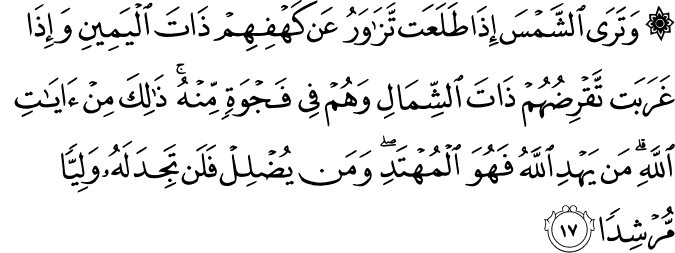 ۞ وَتَرَى ٱلشَّمۡسَ إِذَا طَلَعَت تَّزَٰوَرُ عَن كَهۡفِهِمۡ ذَاتَ ٱلۡيَمِينِ وَإِذَا
غَرَبَت تَّقۡرِضُهُمۡ ذَاتَ ٱلشِّمَالِ وَهُمۡ فِي فَجۡوَةٖ مِّنۡهُۚ ذَٰلِكَ مِنۡ ءَايَٰتِ
ٱللَّهِۗ مَن يَهۡدِ ٱللَّهُ فَهُوَ ٱلۡمُهۡتَدِۖ وَمَن يُضۡلِلۡ فَلَن تَجِدَ لَهُۥ وَلِيّٗا
مُّرۡشِدٗا ١٧